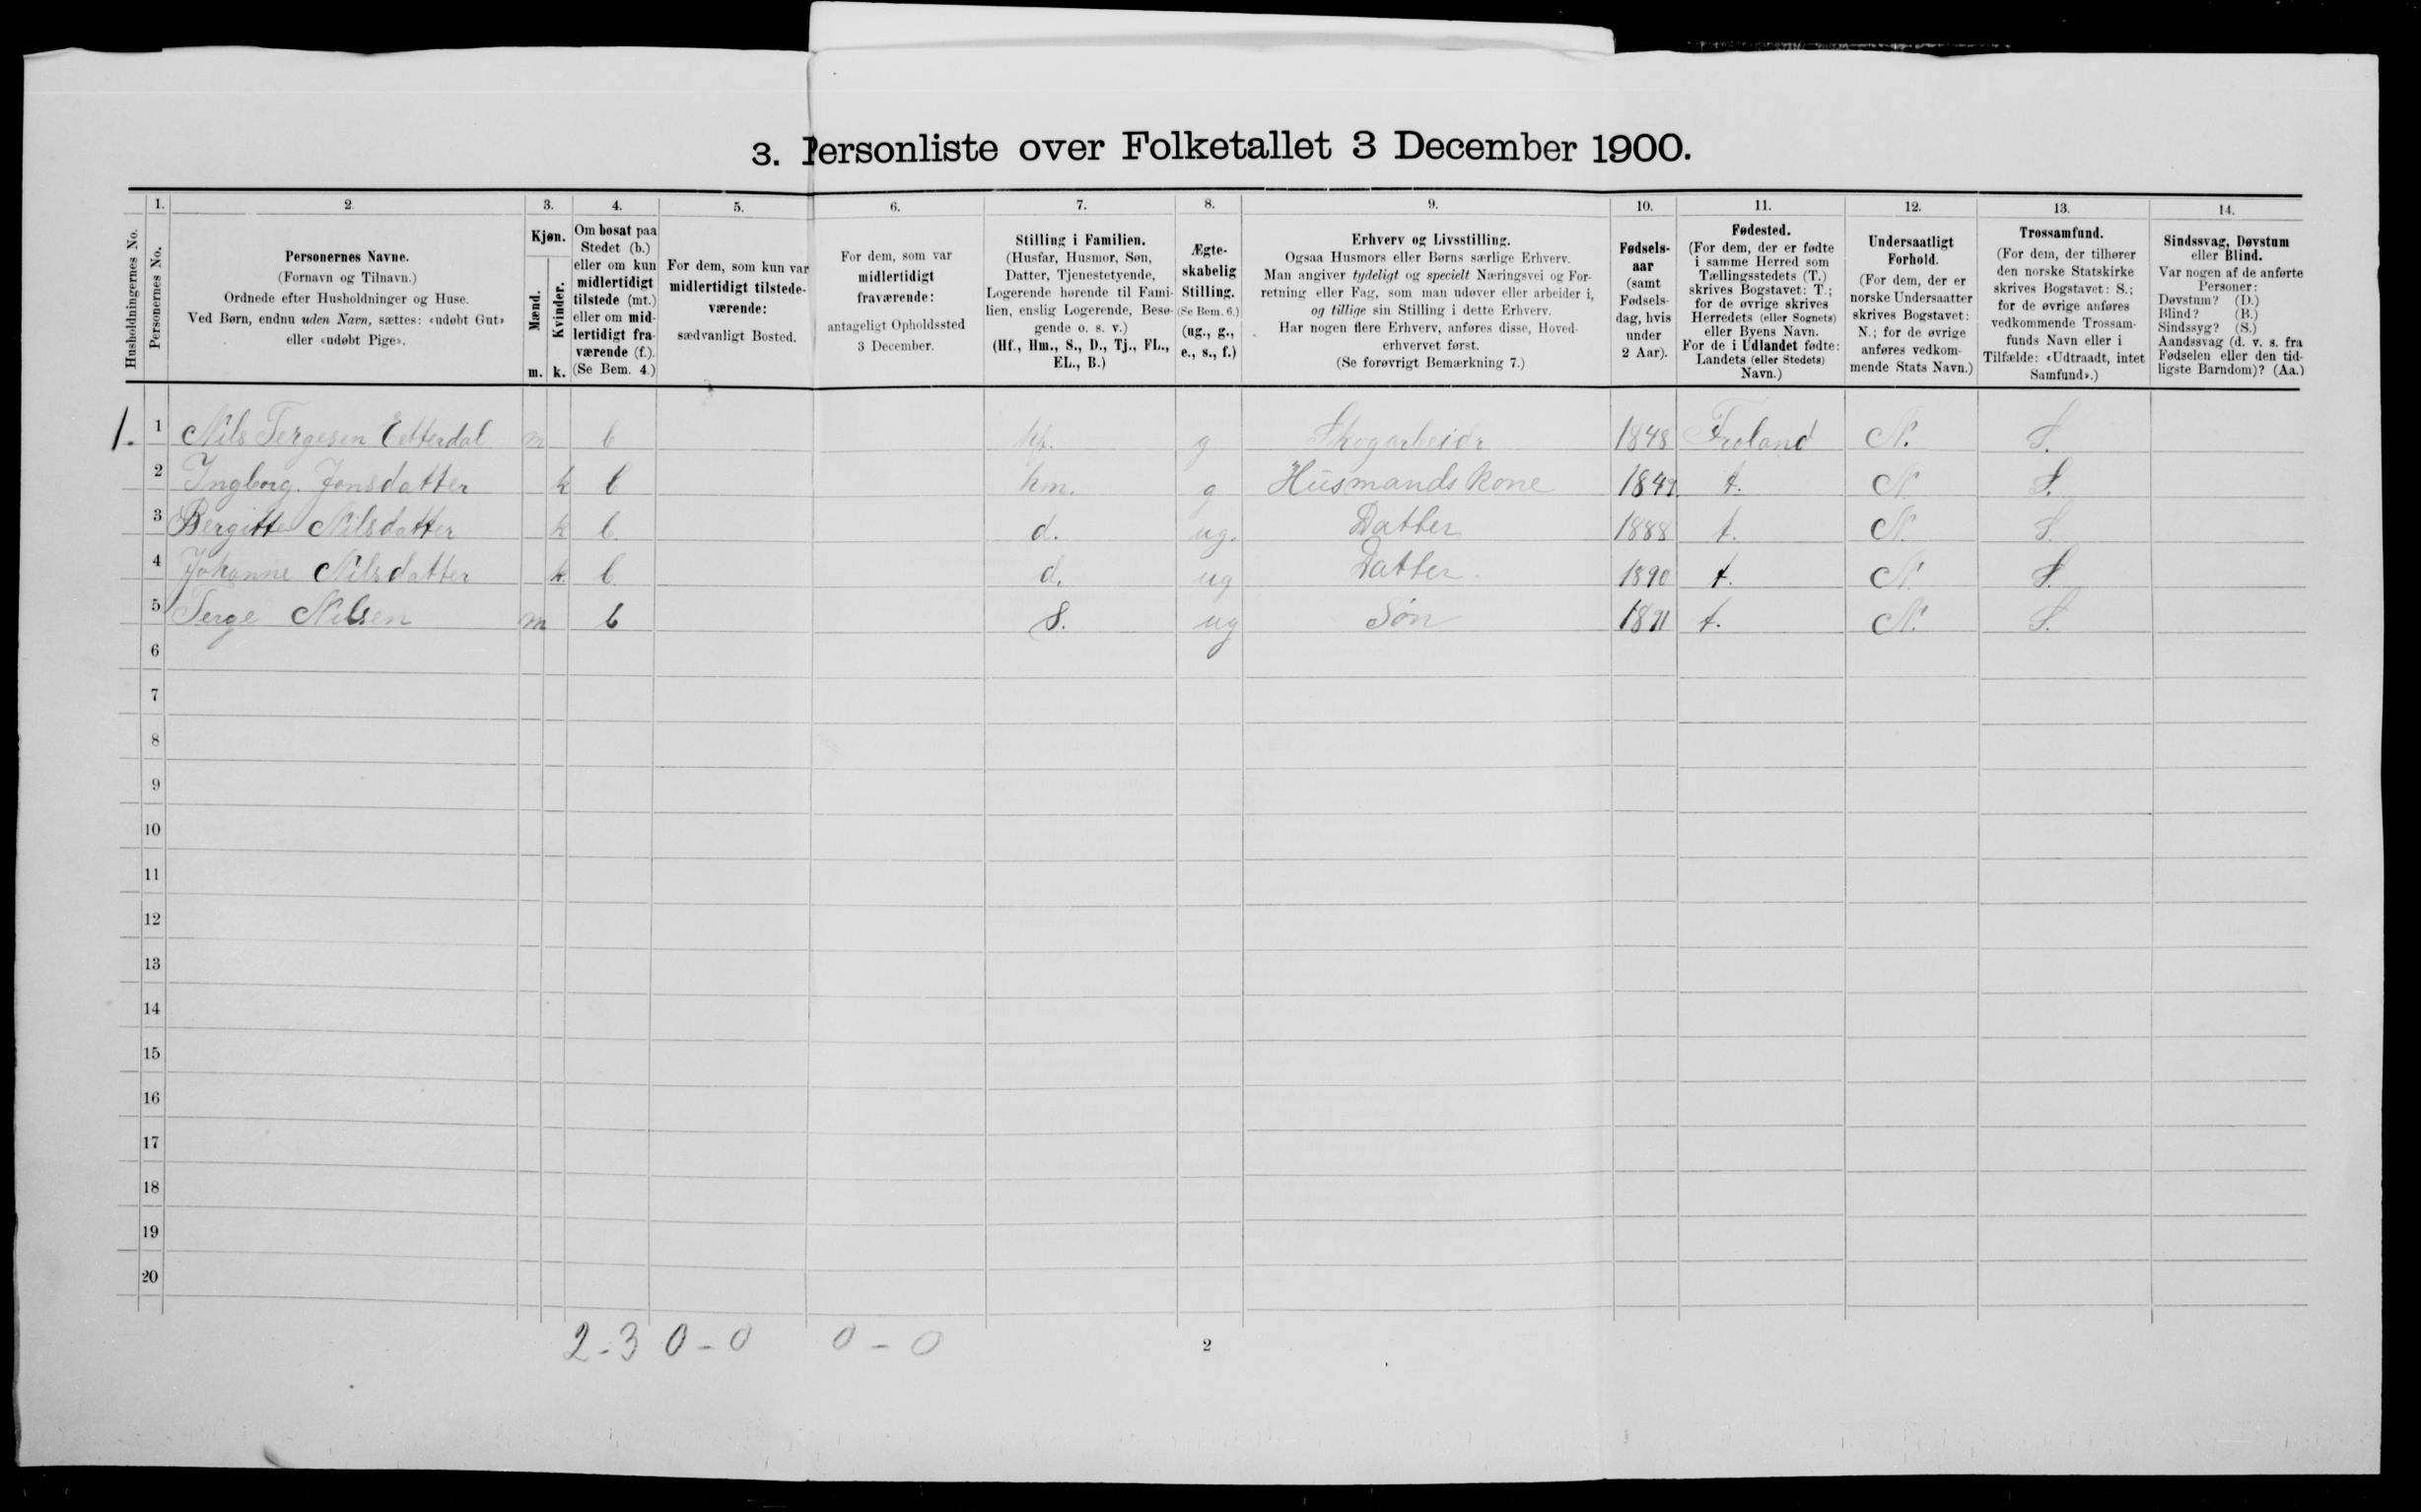 3. Personliste over Folketallet 3 December 1900.
1. 2. 3. 4. 5. 6. 7. 8. 9. 10. 11. 12. 13. 14.
Husholdningernes No.
Personernes No.
Personernes Navne.
(Fornavn og Tilnavn.)
Ordnede efter Husholdninger og Huse.
Ved Børn, endnu uden Navn, sættes: «udøbt Gut»
eller «udøbt Pige».
Kjøn.
Mænd.
Kvinder.
m. k.
Om bosat paa
Stedet (b.)
eller om kun
midlertidigt
tilstede (mt.)
eller om mid-
lertidigt fra-
værende (f.).
(Se Bem. 4.)
For dem, som kun var
midlertidigt tilstede-
værende:
sædvanligt Bosted.
For dem, som var
midlertidigt
fraværende:
antageligt Opholdssted
3 December.
Stilling i Familien.
(Husfar, Husmor, Søn,
Datter, Tjenestetyende,
Logerende hørende til Fami-
lien, enslig Logerende, Besø-
gende o. s. v.)
(Hf., Hm., S., D., Tj., FL.,
EL., B.)
Ægte-
skabelig
Stilling.
(Se Bem. 6.)
(ug., g.,
e., s., f.)
Erhverv og Livsstilling.
Ogsaa Husmors eller Børns særlige Erhverv.
Man angiver tydeligt og specielt Næringsvei og For-
retning eller Fag, som man udøver eller arbeider i,
og tillige sin Stilling i dette Erhverv.
Har nogen flere Erhverv, anføres disse, Hoved-
erhvervet først.
(Se forøvrigt Bemærkning 7.)
Fødsels-
aar
(samt
Fødsels-
dag, hvis
under
2 Aar).
Fødested.
(For dem, der er fødte
i samme Herred som
Tællingsstedets (T.)
skrives Bogstavet: T.;
for de øvrige skrives
Herredets (eller Sognets)
eller Byens Navn.
For de i Udlandet fødte:
Landets (eller Stedets)
Navn.)
Undersaatligt
Forhold.
(For dem, der er
norske Undersaatter
skrives Bogstavet:
N.; for de øvrige
anføres vedkom-
mende Stats Navn.)
Trossamfund.
(For dem, der tilhører
den norske Statskirke
skrives Bogstavet: S.;
for de øvrige anføres
vedkommende Trossam-
funds Navn eller i
Tilfælde: «Udtraadt, intet
Samfund».)
Sindssvag, Døvstum
eller Blind.
Var nogen af de anførte
Personer:
Døvstum? (D.)
Blind? (B.)
Sindssyg? (S.)
Aandssvag (d. v. s. fra
Fødselen eller den tid-
ligste Barndom)? (Aa.)
1. 1 Nils Tergesen Eetterdal m b hf. g Skogarbeidr 1848 Froland N. S.
2 Ingborg. Jonsdatter k b hm. g Husmands kone t. N S.
3 Bergitte Nilsdatter k b. d. ug. Datter 1888 t. N. S
4 Johanne Nilsdatter k b d. ug Datter. 1890 t. N. S.
5 Terge Nilsen m b S. ug Søn 1891 t. N. S.
6
7
8
9
10
11
12
13
14
15
16
17
18
19
20
2-3 0-0 0-0
2